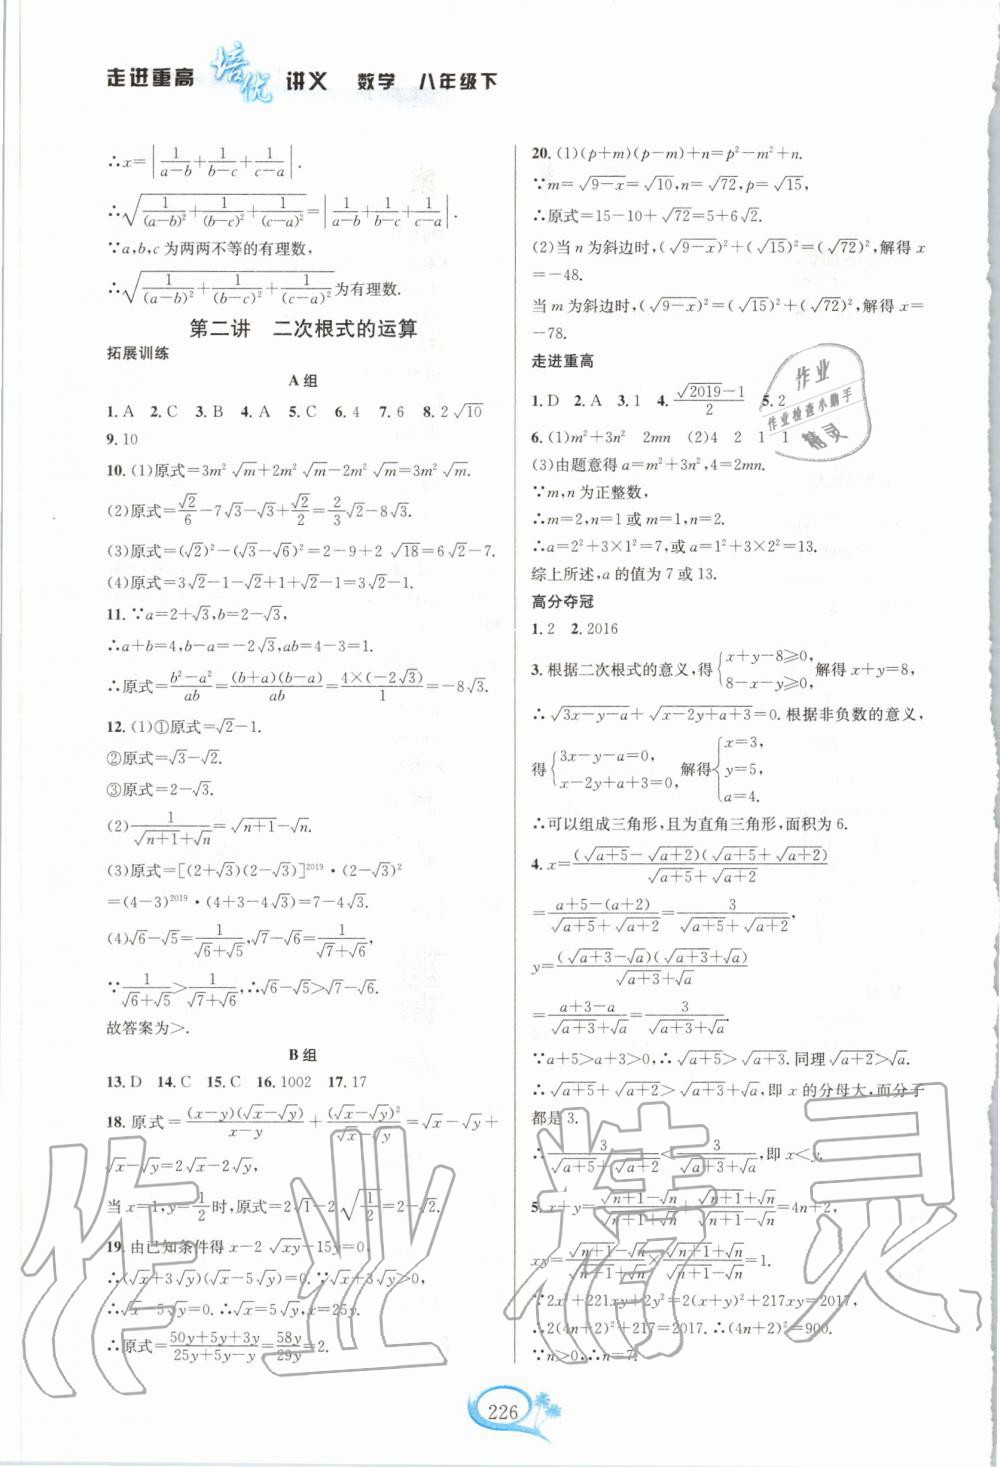 走进重高 培优 讲义 数学 八年级下
∴x=|1/(a−b)+1/(b−c)+1/(c−a)|.
∴√(1/(a−b)²+1/(b−c)²+1/(c−a)²)=|1/(a−b)+1/(b−c)+1/(c−a)|.
∵a,b,c为两两不等的有理数,
∴√(1/(a−b)²+1/(b−c)²+1/(c−a)²)为有理数.
第二讲 二次根式的运算
拓展训练
A组
1. A 2. C 3. B 4. A 5. C 6. 4 7. 6 8. 2√10
9. 10
10. (1)原式=3m²√m+2m²√m−2m²√m=3m²√m.
(2)原式=√2/6−7√3−√3+√2/2=2/3√2−8√3.
(3)原式=(√2)²−(√3−√6)²=2−9+2√18=6√2−7.
(4)原式=3√2−1−√2+1−√2=√2.
11. ∵a=2+√3,b=2−√3,
∴a+b=4,b−a=−2√3,ab=4−3=1.
∴原式=(b²−a²)/ab=(b+a)(b−a)/ab=4×(−2√3)/1=−8√3.
12. (1)①原式=√2−1.
②原式=√3−√2.
③原式=2−√3.
(2)1/(√(n+1)+√n)=√(n+1)−√n.
(3)原式=[(2+√3)(2−√3)]²⁰¹⁹·(2−√3)²
=(4−3)²⁰¹⁹·(4+3−4√3)=7−4√3.
(4)√6−√5=1/(√6+√5),√7−√6=1/(√7+√6),
∵1/(√6+√5)>1/(√7+√6),∴√6−√5>√7−√6.
故答案为>.
B组
13. D 14. C 15. C 16. 1002 17. 17
18. 原式=(x−y)(√x−√y)/(x−y)+(√x−√y)²/(√x−√y)=√x−√y+
√x−√y=2√x−2√y,
当x=1,y=1/2时,原式=2√1−2√(1/2)=2−√2.
19. 由已知条件得x−2√(xy)−15y=0.
∴(√x+3√y)(√x−5√y)=0.∵√x+3√y>0,
∴√x−5√y=0.∴√x=5√y,x=25y.
∴原式=(50y+5y+3y)/(25y+5y−y)=58y/29y=2.
20. (1)(p+m)(p−m)+n=p²−m²+n.
∵m=√(9−x)=√10,n=√72,p=√15,
∴原式=15−10+√72=5+6√2.
(2)当n为斜边时,(√(9−x))²+(√15)²=(√72)²,解得x
=−48.
当m为斜边时,(√(9−x))²=(√15)²+(√72)²,解得x=
−78.
走进重高
1. D 2. A 3. 1 4. (√2019−1)/2 5. 2
6. (1)m²+3n² 2mn (2)4 2 1 1
(3)由题意得a=m²+3n²,4=2mn.
∵m,n为正整数,
∴m=2,n=1或m=1,n=2.
∴a=2²+3×1²=7,或a=1²+3×2²=13.
综上所述,a的值为7或13.
高分夺冠
1. 2 2. 2016
3. 根据二次根式的意义,得{x+y−8≥0, 8−x−y≥0 解得x+y=8,
∴√(3x−y−a)+√(x−2y+a+3)=0.根据非负数的意义,
得{3x−y−a=0, x−2y+a+3=0, 解得{x=3, y=5, a=4.
∴可以组成三角形,且为直角三角形,面积为6.
4. x=(√(a+5)−√(a+2))(√(a+5)+√(a+2))/(√(a+5)+√(a+2))
=(a+5−(a+2))/(√(a+5)+√(a+2))=3/(√(a+5)+√(a+2)),
y=(√(a+3)−√a)(√(a+3)+√a)/(√(a+3)+√a)
=(a+3−a)/(√(a+3)+√a)=3/(√(a+3)+√a).
∵a+5>a+3>0,∴√(a+5)>√(a+3).同理√(a+2)>√a.
∴√(a+5)+√(a+2)>√(a+3)+√a,即x的分母大,而分子
都是3.
∴3/(√(a+5)+√(a+2))<3/(√(a+3)+√a),即x<y.
5. x+y=(√(n+1)−√n)/(√(n+1)+√n)+(√(n+1)+√n)/(√(n+1)−√n)=4n+2,
xy=(√(n+1)−√n)/(√(n+1)+√n)×(√(n+1)+√n)/(√(n+1)−√n)=1.
∵2x²+221xy+2y²=2(x+y)²+217xy=2017,
∴2(4n+2)²+217=2017.∴(4n+2)²=900.
∵n>0,∴n=7.
226
作业
作业检查小助手
精灵
作业精灵